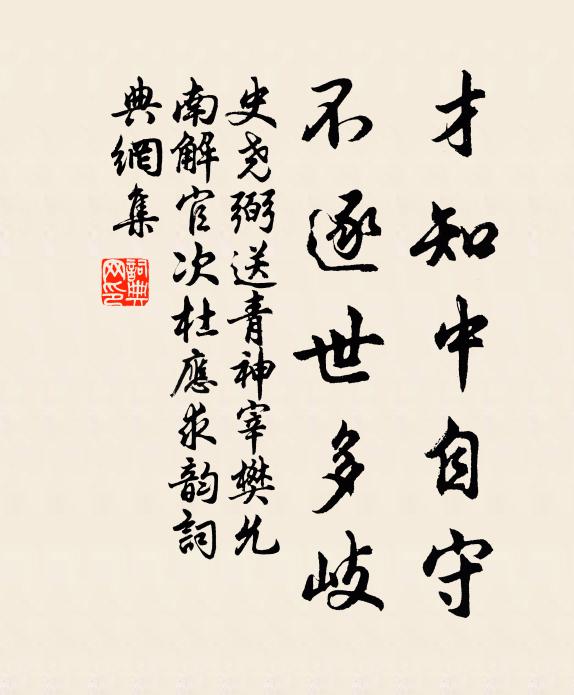 才知中自守
不逐世多歧
史尧弼送青神宰樊允
南解官次杜應求韵詞
典網集
詞典網印